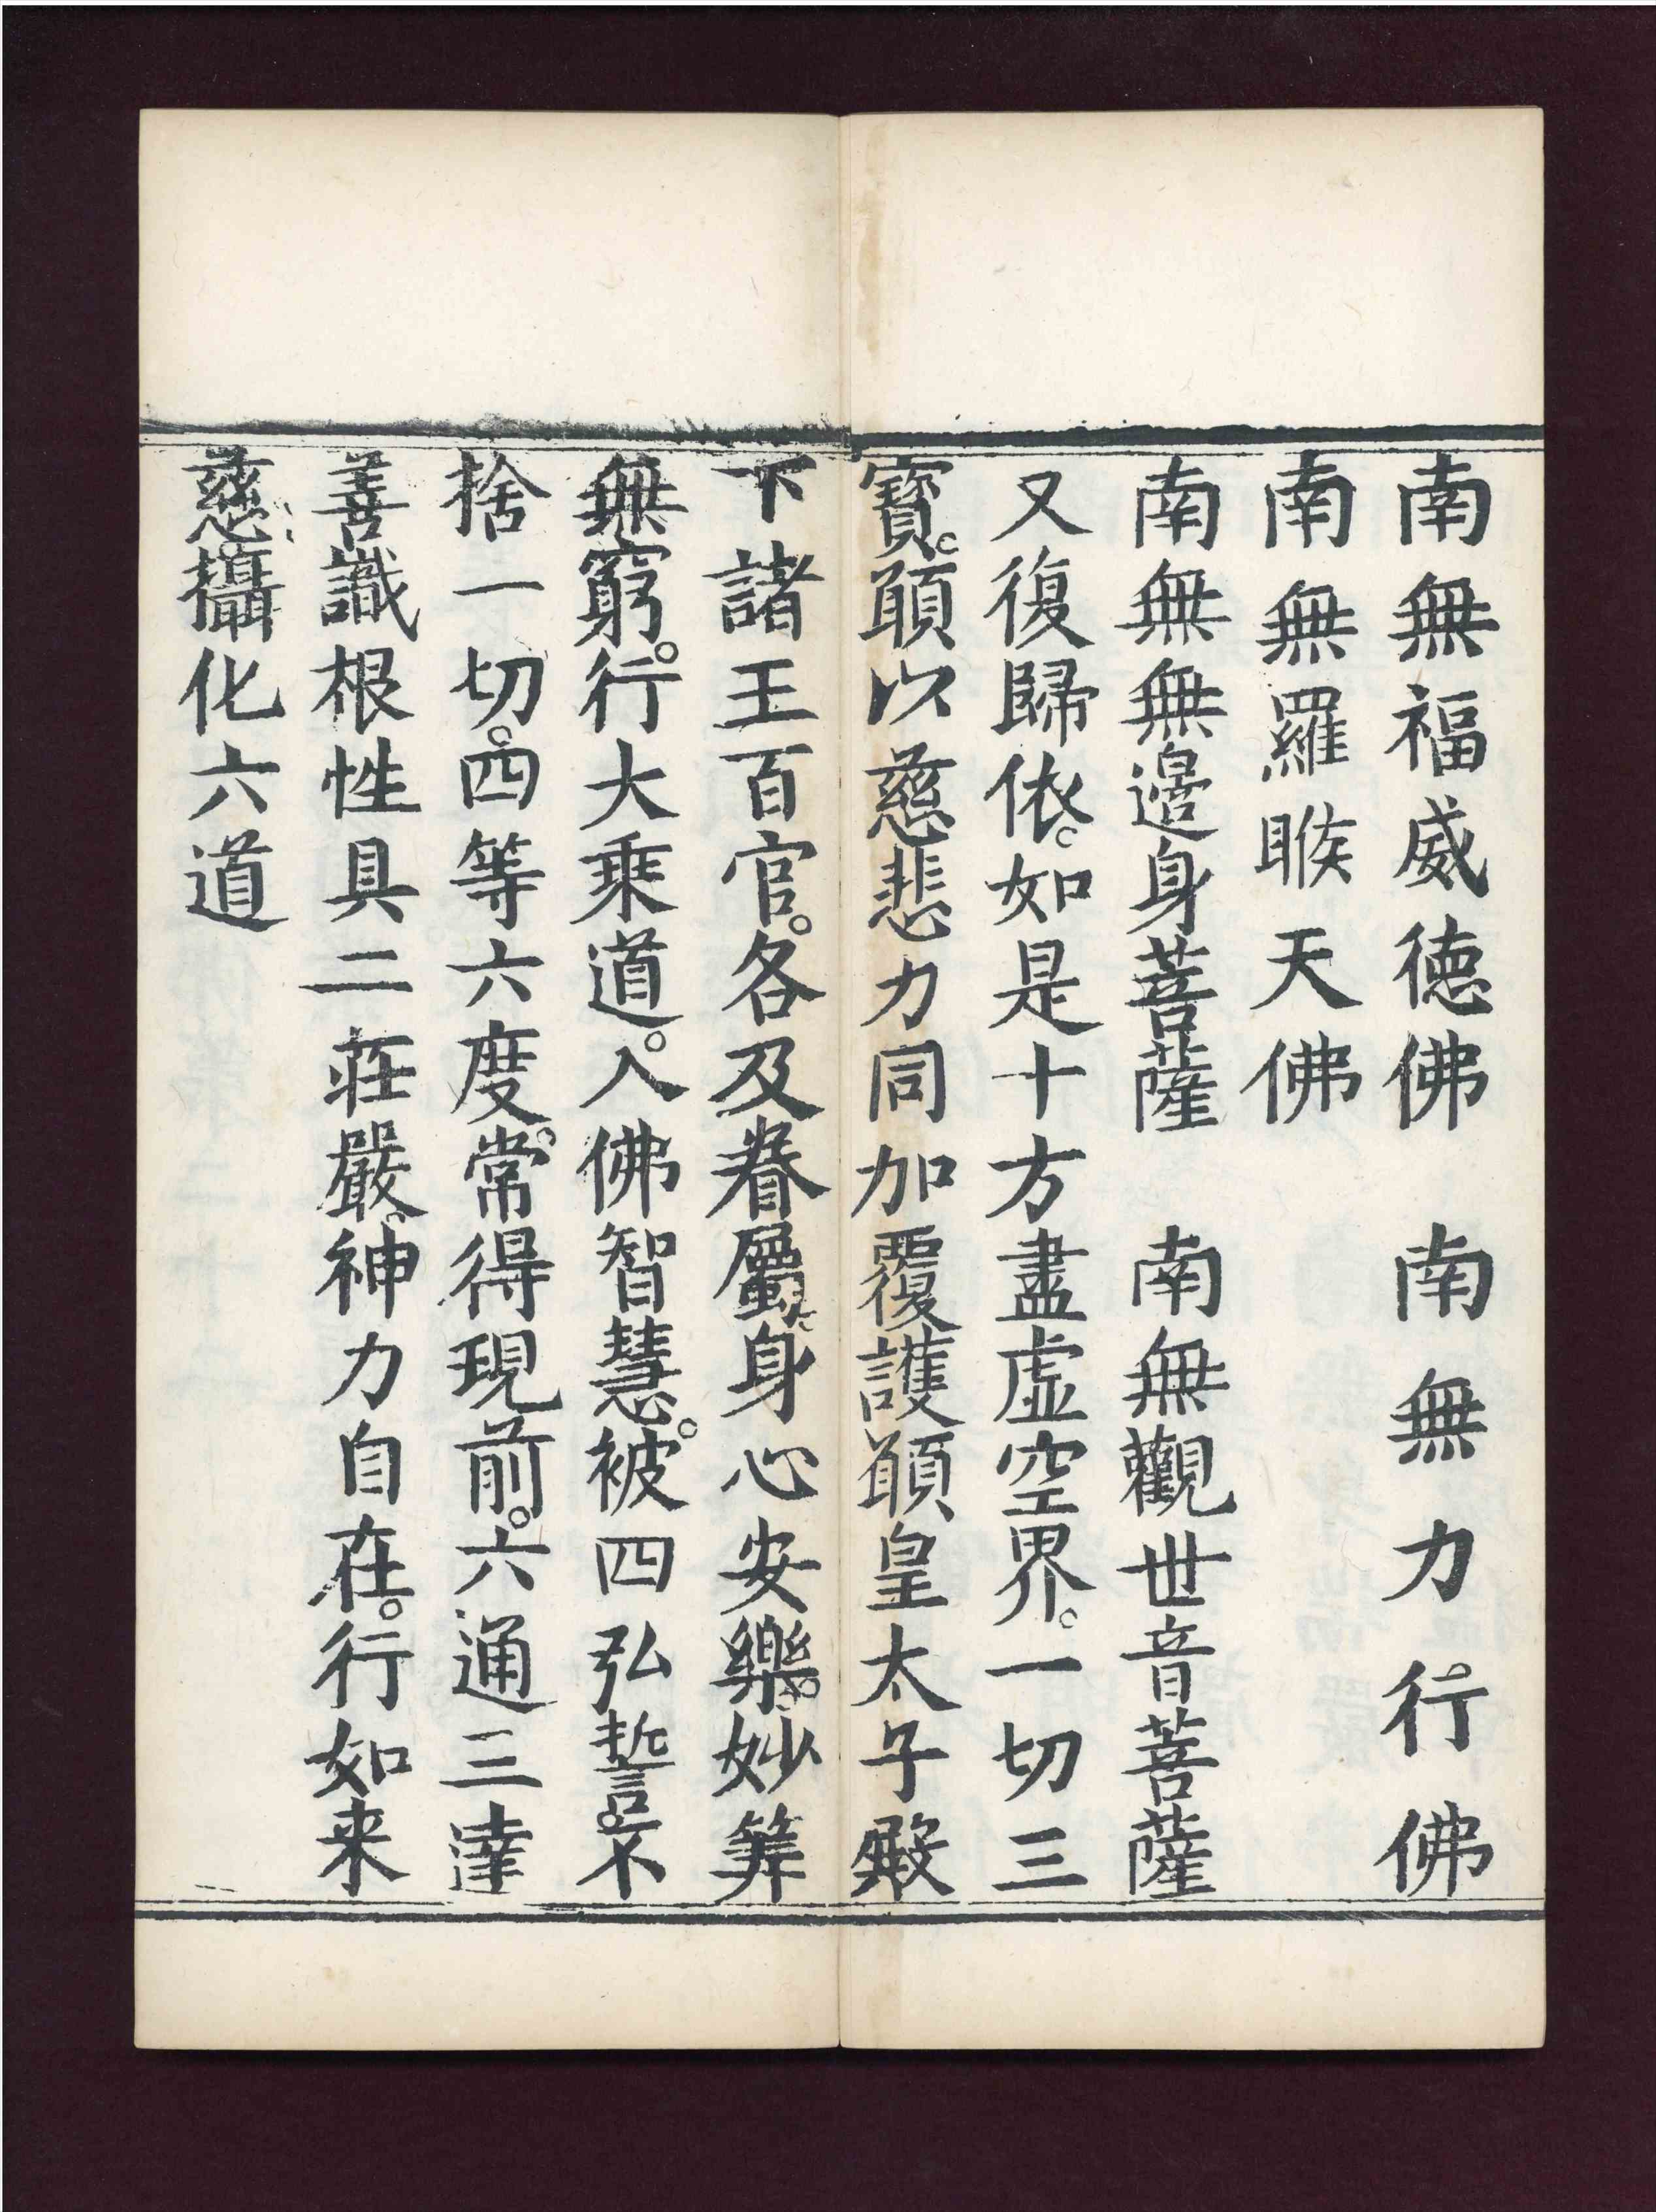 南無福威德佛　南無力行佛
南無羅睺天佛
南無無邊身菩薩　南無觀世音菩薩
又復歸依。如是十方盡虛空界。一切三
寶。願以慈悲力同加覆護願皇太子殿
下諸王百官。各及眷屬。身心安樂。妙筭
無窮。行大乘道。入佛智慧。被四弘誓。不
捨一切。四等六度。常得現前。六通三達
善識根性具二莊嚴。神力自在。行如来
慈攝化六道